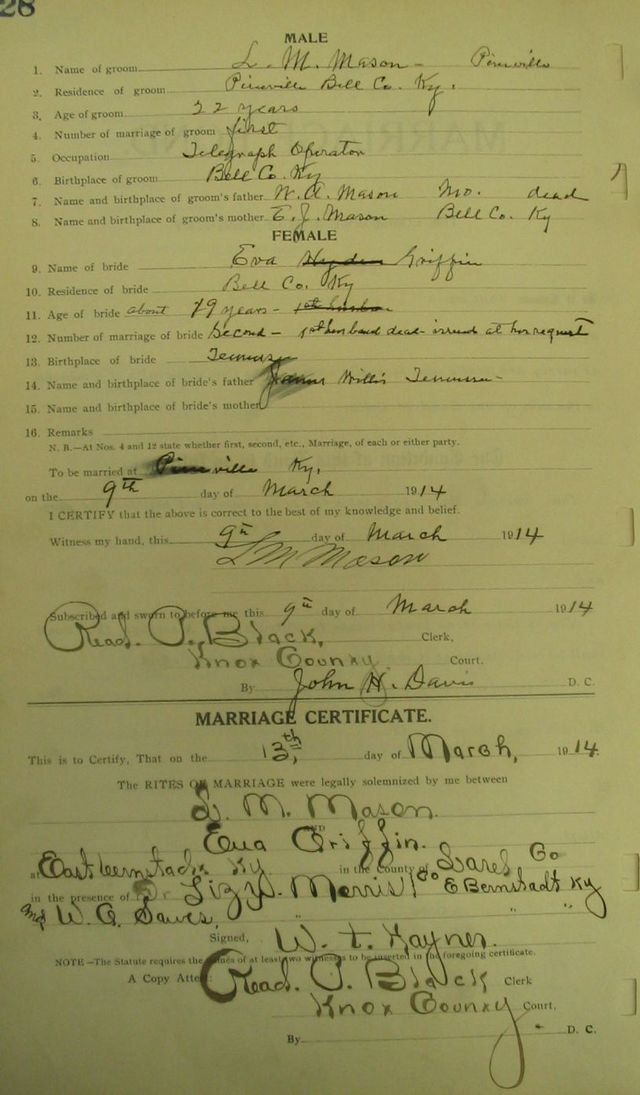 28
MALE
1. Name of groom L. M. Mason - Pineville
2. Residence of groom Pineville Bell Co. Ky.
3. Age of groom 22 years
4. Number of marriage of groom first
5. Occupation Telegraph Operator
6. Birthplace of groom Bell Co. Ky
7. Name and birthplace of groom's father W. A. Mason Mo. dead
8. Name and birthplace of groom's mother E. J. Mason Bell Co. Ky
FEMALE
9. Name of bride Eva Hayden Griffin
10. Residence of bride Bell Co. Ky
11. Age of bride about 19 years -
12. Number of marriage of bride Second - 1st husband dead - issued at her request
13. Birthplace of bride
14. Name and birthplace of bride's father Willis
15. Name and birthplace of bride's mother
16. Remarks
N. B.—At Nos. 4 and 12 state whether first, second, etc., Marriage, of each or either party.
To be married at Pineville Ky.
on the 9th day of March 1914
I CERTIFY that the above is correct to the best of my knowledge and belief.
Witness my hand, this 9th day of March 1914
L M Mason
Subscribed and sworn to before me this 9th day of March 1914
Read. P. Black, Clerk,
Knox County Court.
By John H. Davis D. C.
MARRIAGE CERTIFICATE.
This is to Certify, That on the 13th, day of March, 1914.
The RITES OF MARRIAGE were legally solemnized by me between
L. M. Mason.
AND
Eva Griffin.
at East Bernstadt Ky in the County of Laurel Co
in the presence of Morris E Bernstadt Ky
and W. G. " "
Signed, W. T.
NOTE—The Statute requires the names of at least two witnesses to be inserted in the foregoing certificate.
A Copy Attest: Read. P. Black Clerk
Knox County Court,
By D. C.